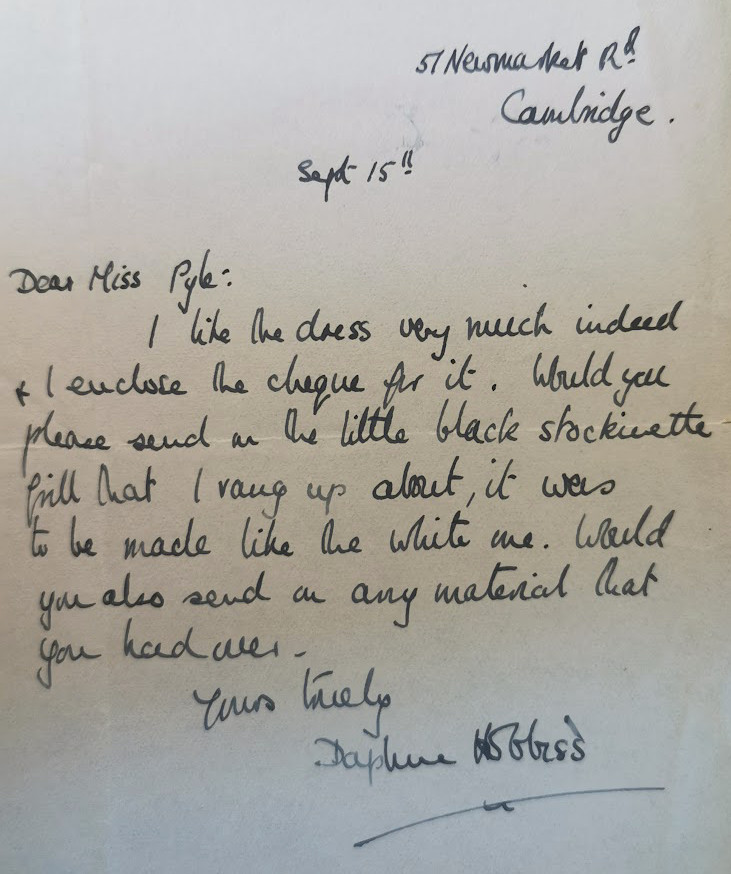 51 Newmarket Rd
Cambridge.
Sept 15th
Dear Miss Pyle:
I like the dress very much indeed
& I enclose the cheque for it. Would you
please send on the little black stockinette
frill that I rang up about, it was
to be made like the white one. Would
you also send on any material that
you had over.
Yours truly
Daphne